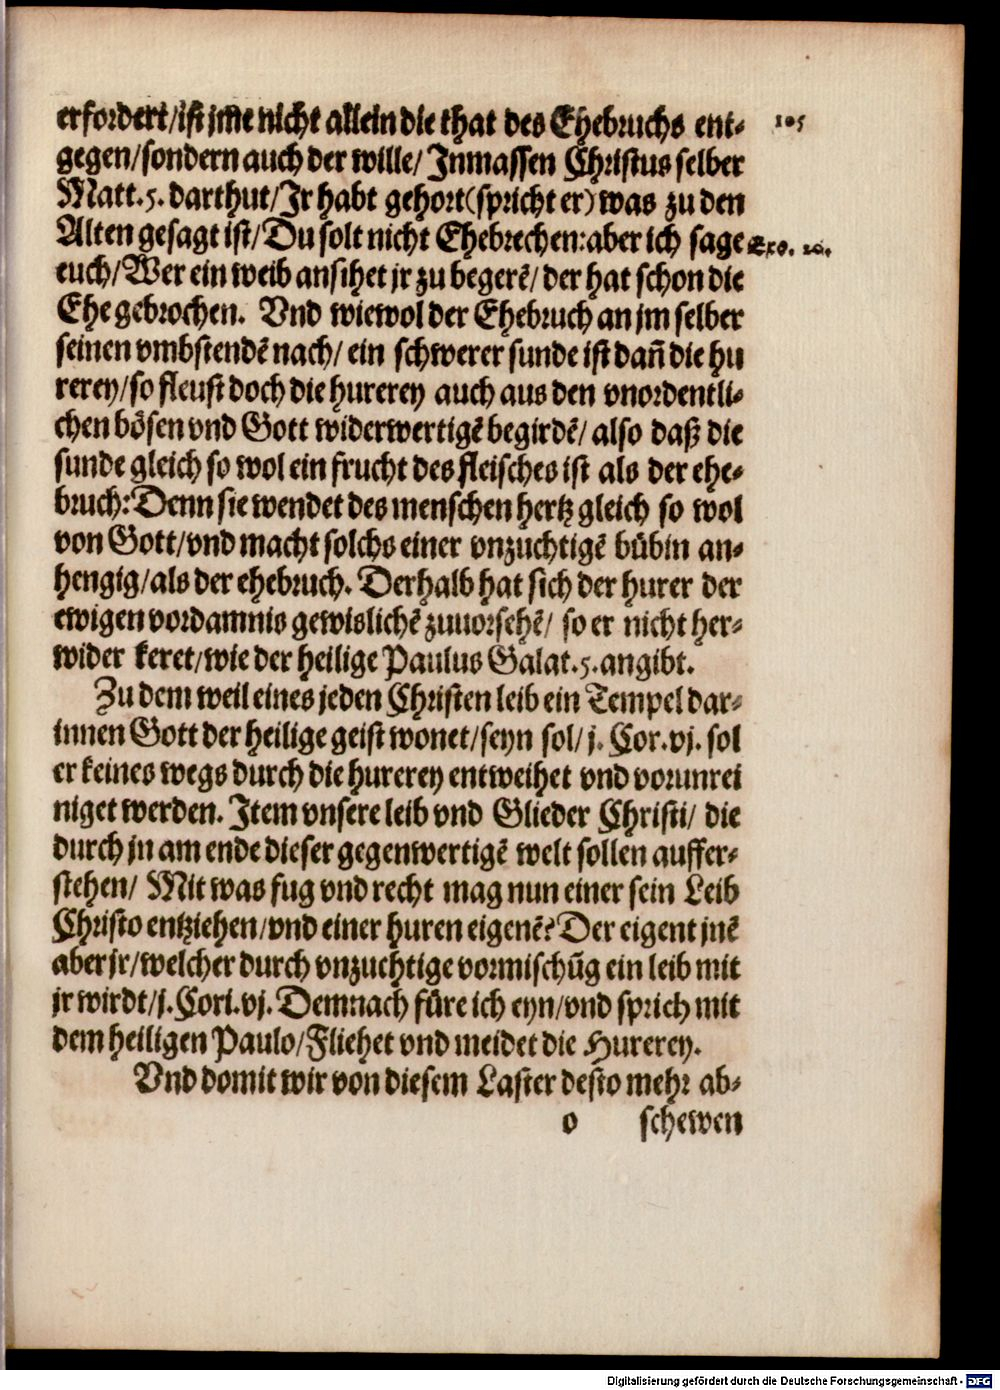 erfordert/ist jme nicht allein die that des Ehebruchs ent-
105
gegen/sondern auch der wille/ Inmassen Christus selber
Matt.5. darthut/Jr habt gehort(spricht er)was zu den
Alten gesagt ist/Du solt nicht Ehebrechen:aber ich sage
Exo. 20.
euch/Wer ein weib ansihet jr zu begerẽ/der hat schon die
Ehe gebrochen. Vnd wiewol der Ehebruch an jm selber
seinen vmbstendẽ nach/ ein schwerer sunde ist dañ die hu
rerey/so fleust doch die hurerey auch aus den vnordentli-
chen bösen vnd Gott widerwertigẽ begirdẽ/ also daß die
sunde gleich so wol ein frucht des fleisches ist als der ehe-
bruch:Denn sie wendet des menschen hertz gleich so wol
von Gott/vnd macht solchs einer vnzuchtigẽ bübin an-
hengig/als der ehebruch. Derhalb hat sich der hurer der
ewigen vordamnis gewislichẽ zuuorsehẽ/ so er nicht her-
wider keret/wie der heilige Paulus Galat.5.angibt.
Zu dem weil eines jeden Christen leib ein Tempel dar-
innen Gott der heilige geist wonet/seyn sol/ j. Cor.vj. sol
er keines wegs durch die hurerey entweihet vnd vorunrei
niget werden. Item vnsere leib vnd Glieder Christi/ die
durch jn am ende dieser gegenwertigẽ welt sollen auffer-
stehen/ Mit was fug vnd recht mag nun einer sein Leib
Christo entziehen/vnd einer huren eigenẽ? Der eigent jnẽ
aber jr/welcher durch vnzuchtige vormischũg ein leib mit
jr wirdt/j.Cori.vj. Demnach füre ich eyn/vnd sprich mit
dem heiligen Paulo/Fliehet vnd meidet die Hurerey.
Vnd domit wir von diesem Laster desto mehr ab-
o schewen
Digitalisierung gefördert durch die Deutsche Forschungsgemeinschaft - DFG